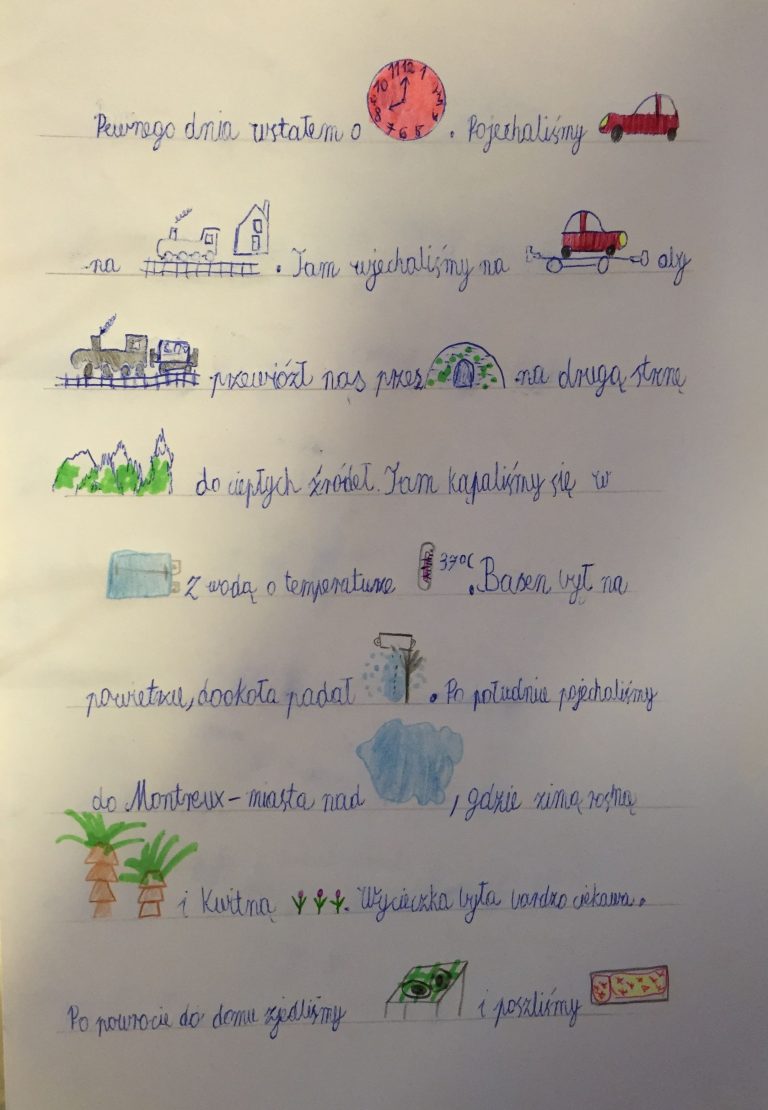 Pewnego dnia wstałem o . Pojechaliśmy
na . Tam wjechaliśmy na aby
przewiózł nas przez na drugą strnę
do ciepłych źródeł. Tam kąpaliśmy się w
z wodą o temperaturze 37°C. Basen był na
powietrzu, dookoła padał . Po południu pojechaliśmy
do Montreux - miasta nad , gdzie zimą rosną
i kwitną . Wycieczka była bardzo ciekawa.
Po powrocie do domu zjedliśmy i poszliśmy